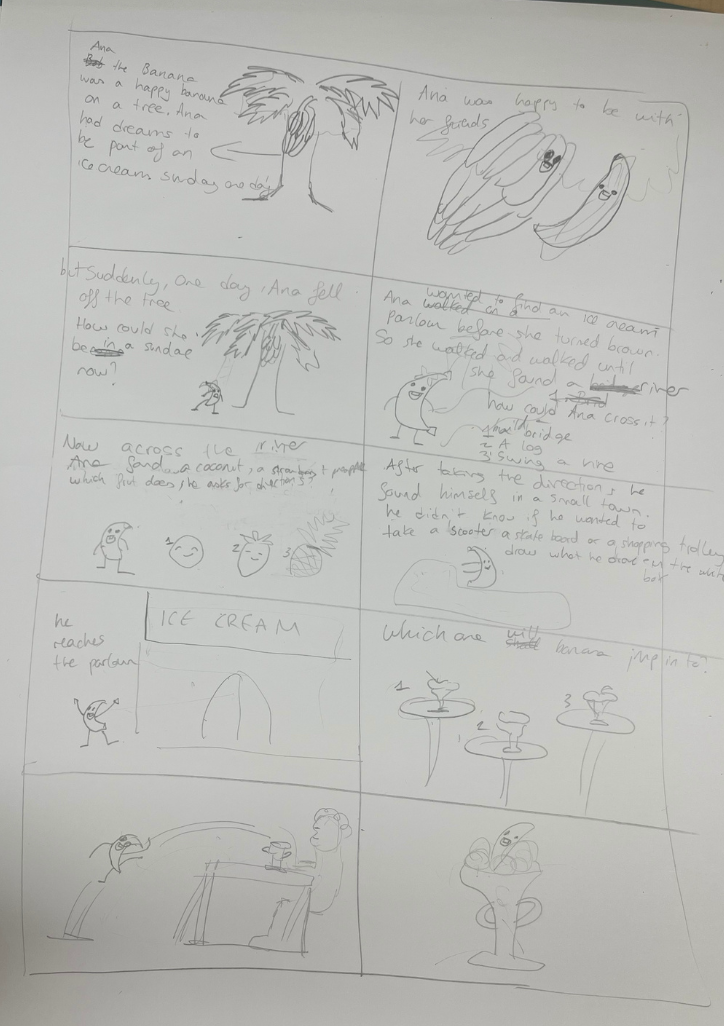 Ana
the Banana
was a happy banana
on a tree. Ana
had dreams to
be part of an
ice cream sunday one day
Ana was happy to be with
her friends
but Suddenly, one day, Ana fell
off the tree
How could she
be in a sundae
now?
wanted to find an ice cream
Ana walked on a
parlour before she turned brown.
So she walked and walked until
she found a river
how could Ana cross it?
1 bridge
2 A log
3 Swing a vine
Now across the river
Ana found a coconut, a strawberry + pineapple
which fruit does she asks for directions?
1
2
3
After taking the directions, he
found himself in a small town.
he didn't know if he wanted to
take a scooter a skate board or a shopping trolley
draw what he drove in the white
box
he
reaches
the parlour
ICE CREAM
Which one will banana jump into?
1
2
3